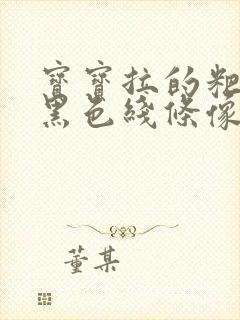 寶寶拉的粑
黑色綫條像
董某